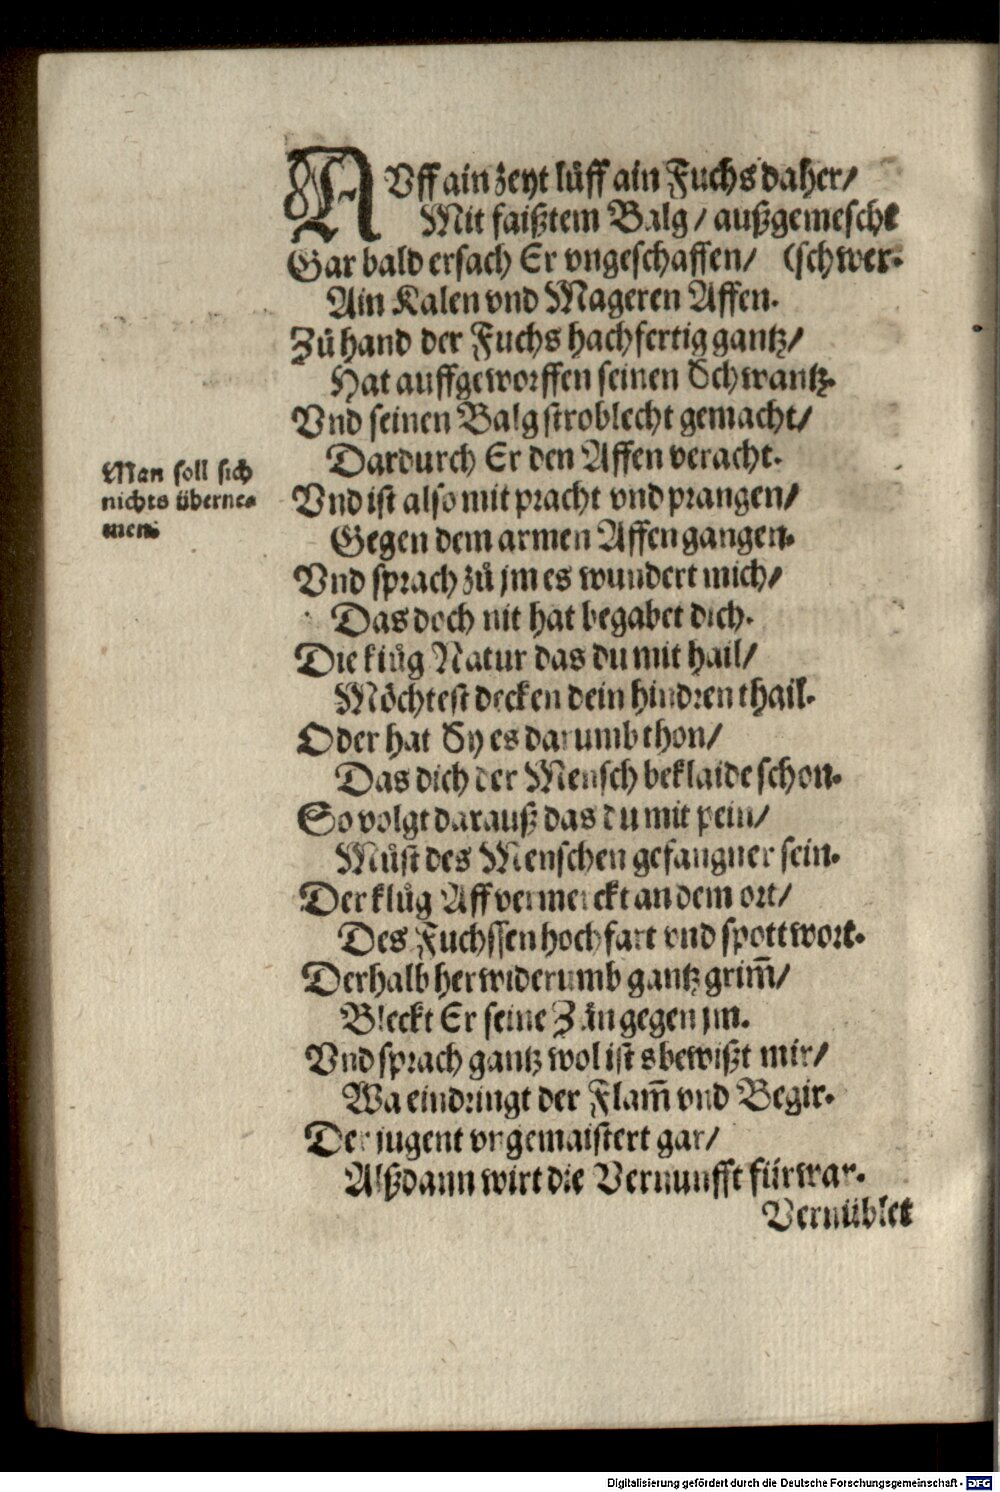 AUff ain zeyt lüff ain Fuchs daher/
Mit faißtem Balg/ außgemescht
Gar bald ersach Er vngeschaffen/ (schwer.
Ain Kalen vnd Mageren Affen.
Zů hand der Fuchs hachfertig gantz/
Hat auffgeworffen seinen Schwantz.
Vnd seinen Balg stroblecht gemacht/
Dardurch Er den Affen veracht.
Man soll sich
nichts überne-
men.
Vnd ist also mit pracht vnd prangen/
Gegen dem armen Affen gangen.
Vnd sprach zů jm es wundert mich/
Das doch nit hat begabet dich.
Die klůg Natur das du mit hail/
Möchtest decken dein hindren thail.
Oder hat Sy es darumb thon/
Das dich der Mensch beklaide schon.
So volgt darauß das du mit pein/
Můst des Menschen gefangner sein.
Der klůg Aff vermerckt an dem ort/
Des Fuchssen hochfart vnd spottwort.
Derhalb herwiderumb gantz grim̃/
Bleckt Er seine Zän gegen jm.
Vnd sprach gantz wol ist s bewißt mir/
Wa eindringt der Flam̃ vnd Begir.
Der jugent vngemaistert gar/
Alßdann wirt die Vernunfft fürwar.
Vernüblet
Digitalisierung gefördert durch die Deutsche Forschungsgemeinschaft - DFG